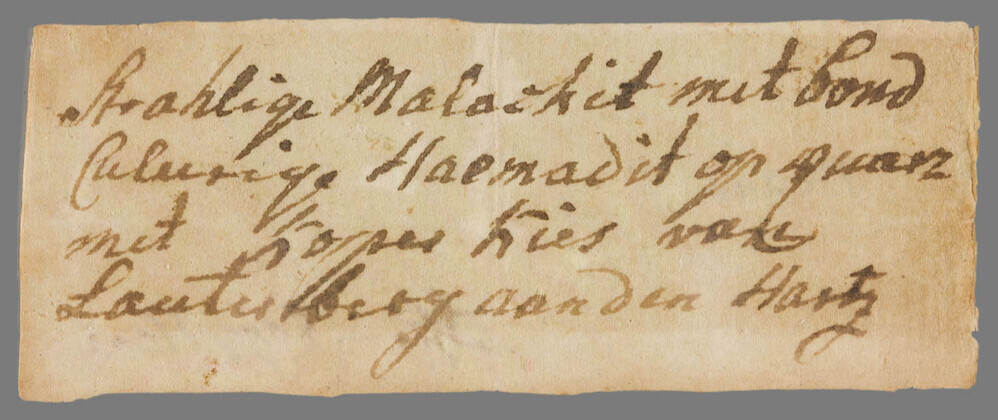 Strahlige Malachit met bond
Culeurige Haemadit op quarz
met koper kies van
Lauterberg aan den Hartz